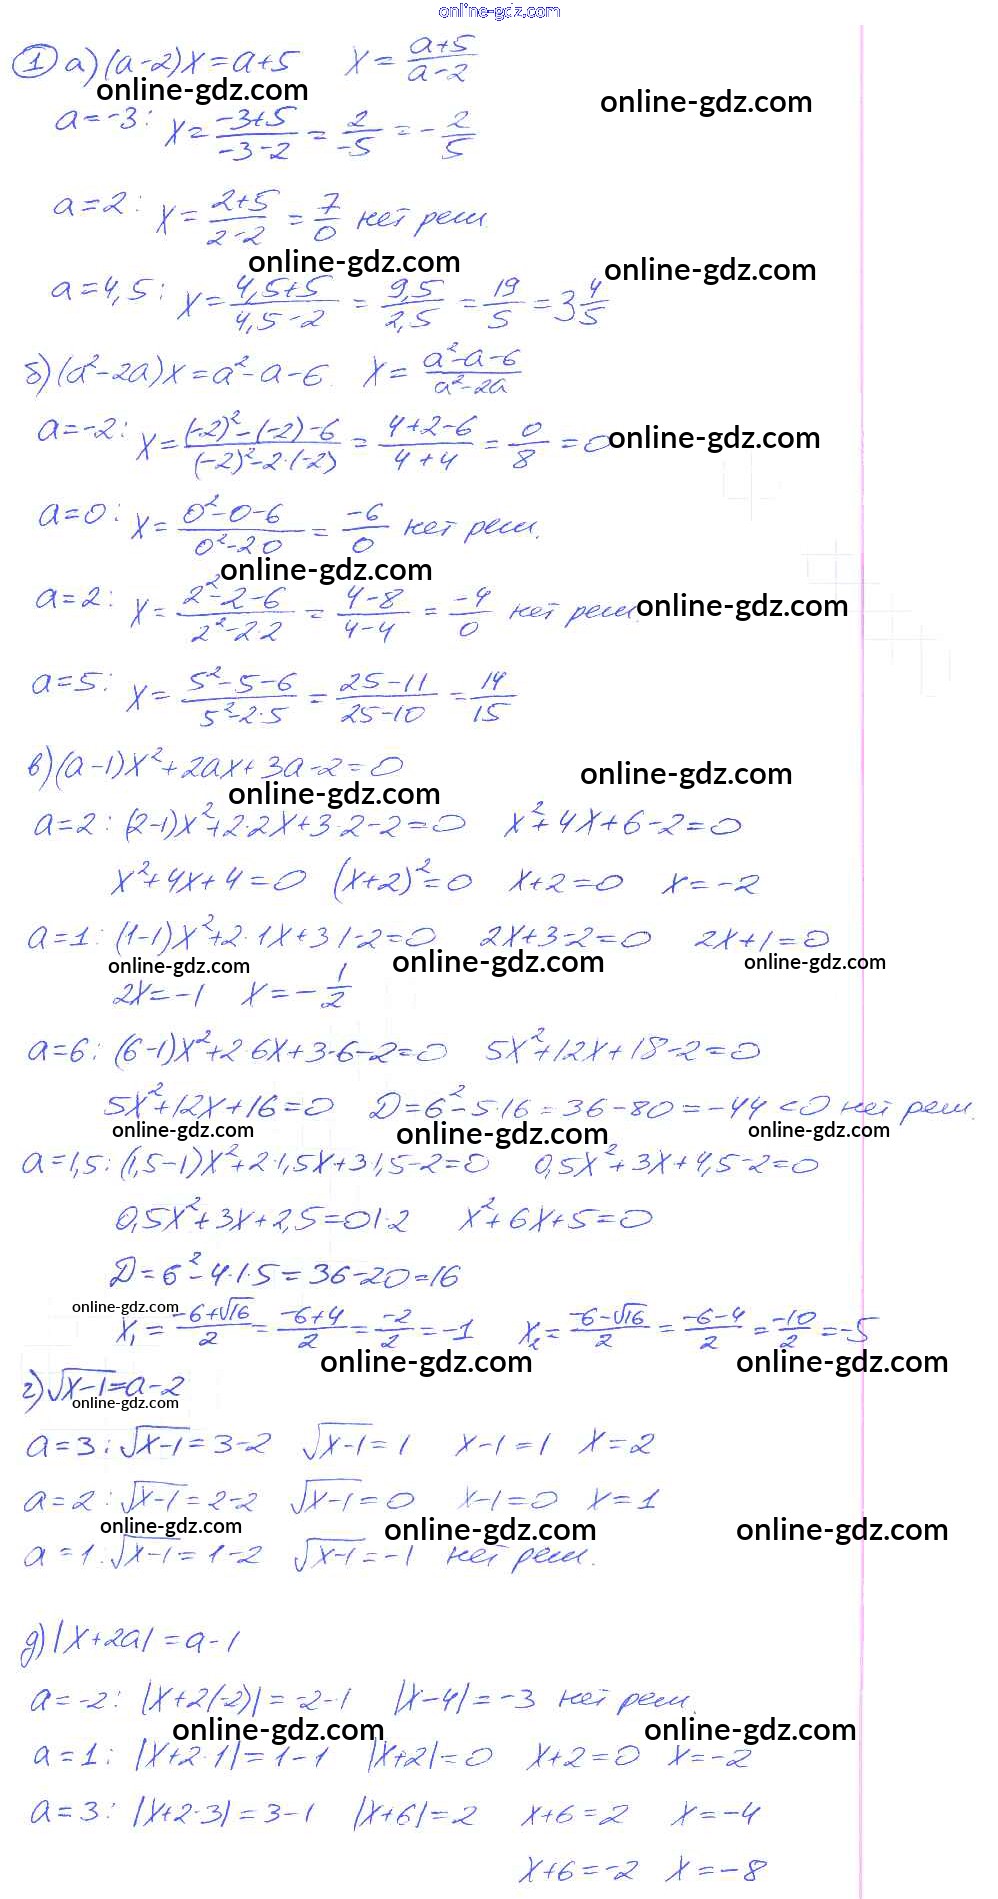 online-gdz.com
1 а) (a-2)x=a+5 x=(a+5)/(a-2)
online-gdz.com online-gdz.com
a=-3: x=(-3+5)/(-3-2)=2/-5=-2/5
a=2: x=(2+5)/(2-2)=7/0 нет реш.
online-gdz.com online-gdz.com
a=4,5: x=(4,5+5)/(4,5-2)=9,5/2,5=19/5=3 4/5
б) (a²-2a)x=a²-a-6. x=(a²-a-6)/(a²-2a)
a=-2: x=((-2)²-(-2)-6)/((-2)²-2·(-2))=(4+2-6)/(4+4)=0/8=0 online-gdz.com
a=0: x=(0²-0-6)/(0²-20)=-6/0 нет реш.
online-gdz.com
a=2: x=(2²-2-6)/(2²-2·2)=(4-8)/(4-4)=-4/0 нет реш. online-gdz.com
a=5: x=(5²-5-6)/(5²-2·5)=(25-11)/(25-10)=14/15
в) (a-1)x²+2ax+3a-2=0
online-gdz.com online-gdz.com
a=2: (2-1)x²+2·2x+3·2-2=0 x²+4x+6-2=0
x²+4x+4=0 (x+2)²=0 x+2=0 x=-2
a=1: (1-1)x²+2·1x+3·1-2=0 2x+3-2=0 2x+1=0
online-gdz.com online-gdz.com online-gdz.com
2x=-1 x=-1/2
a=6: (6-1)x²+2·6x+3·6-2=0 5x²+12x+18-2=0
5x²+12x+16=0 Д=6²-5·16=36-80=-44<0 нет реш.
online-gdz.com online-gdz.com online-gdz.com
a=1,5: (1,5-1)x²+2·1,5x+3·1,5-2=0 0,5x²+3x+4,5-2=0
0,5x²+3x+2,5=0|·2 x²+6x+5=0
Д=6²-4·1·5=36-20=16
online-gdz.com
x₁=(-6+√16)/2=(-6+4)/2=-2/2=-1 x₂=(-6-√16)/2=(-6-4)/2=-10/2=-5
online-gdz.com online-gdz.com
г) √(x-1)=a-2
online-gdz.com
a=3: √(x-1)=3-2 √(x-1)=1 x-1=1 x=2
a=2: √(x-1)=2-2 √(x-1)=0 x-1=0 x=1
online-gdz.com online-gdz.com online-gdz.com
a=1: √(x-1)=1-2 √(x-1)=-1 нет реш.
д) |x+2a|=a-1
a=-2: |x+2(-2)|=-2-1 |x-4|=-3 нет реш.
online-gdz.com online-gdz.com
a=1: |x+2·1|=1-1 |x+2|=0 x+2=0 x=-2
a=3: |x+2·3|=3-1 |x+6|=2 x+6=2 x=-4
x+6=-2 x=-8